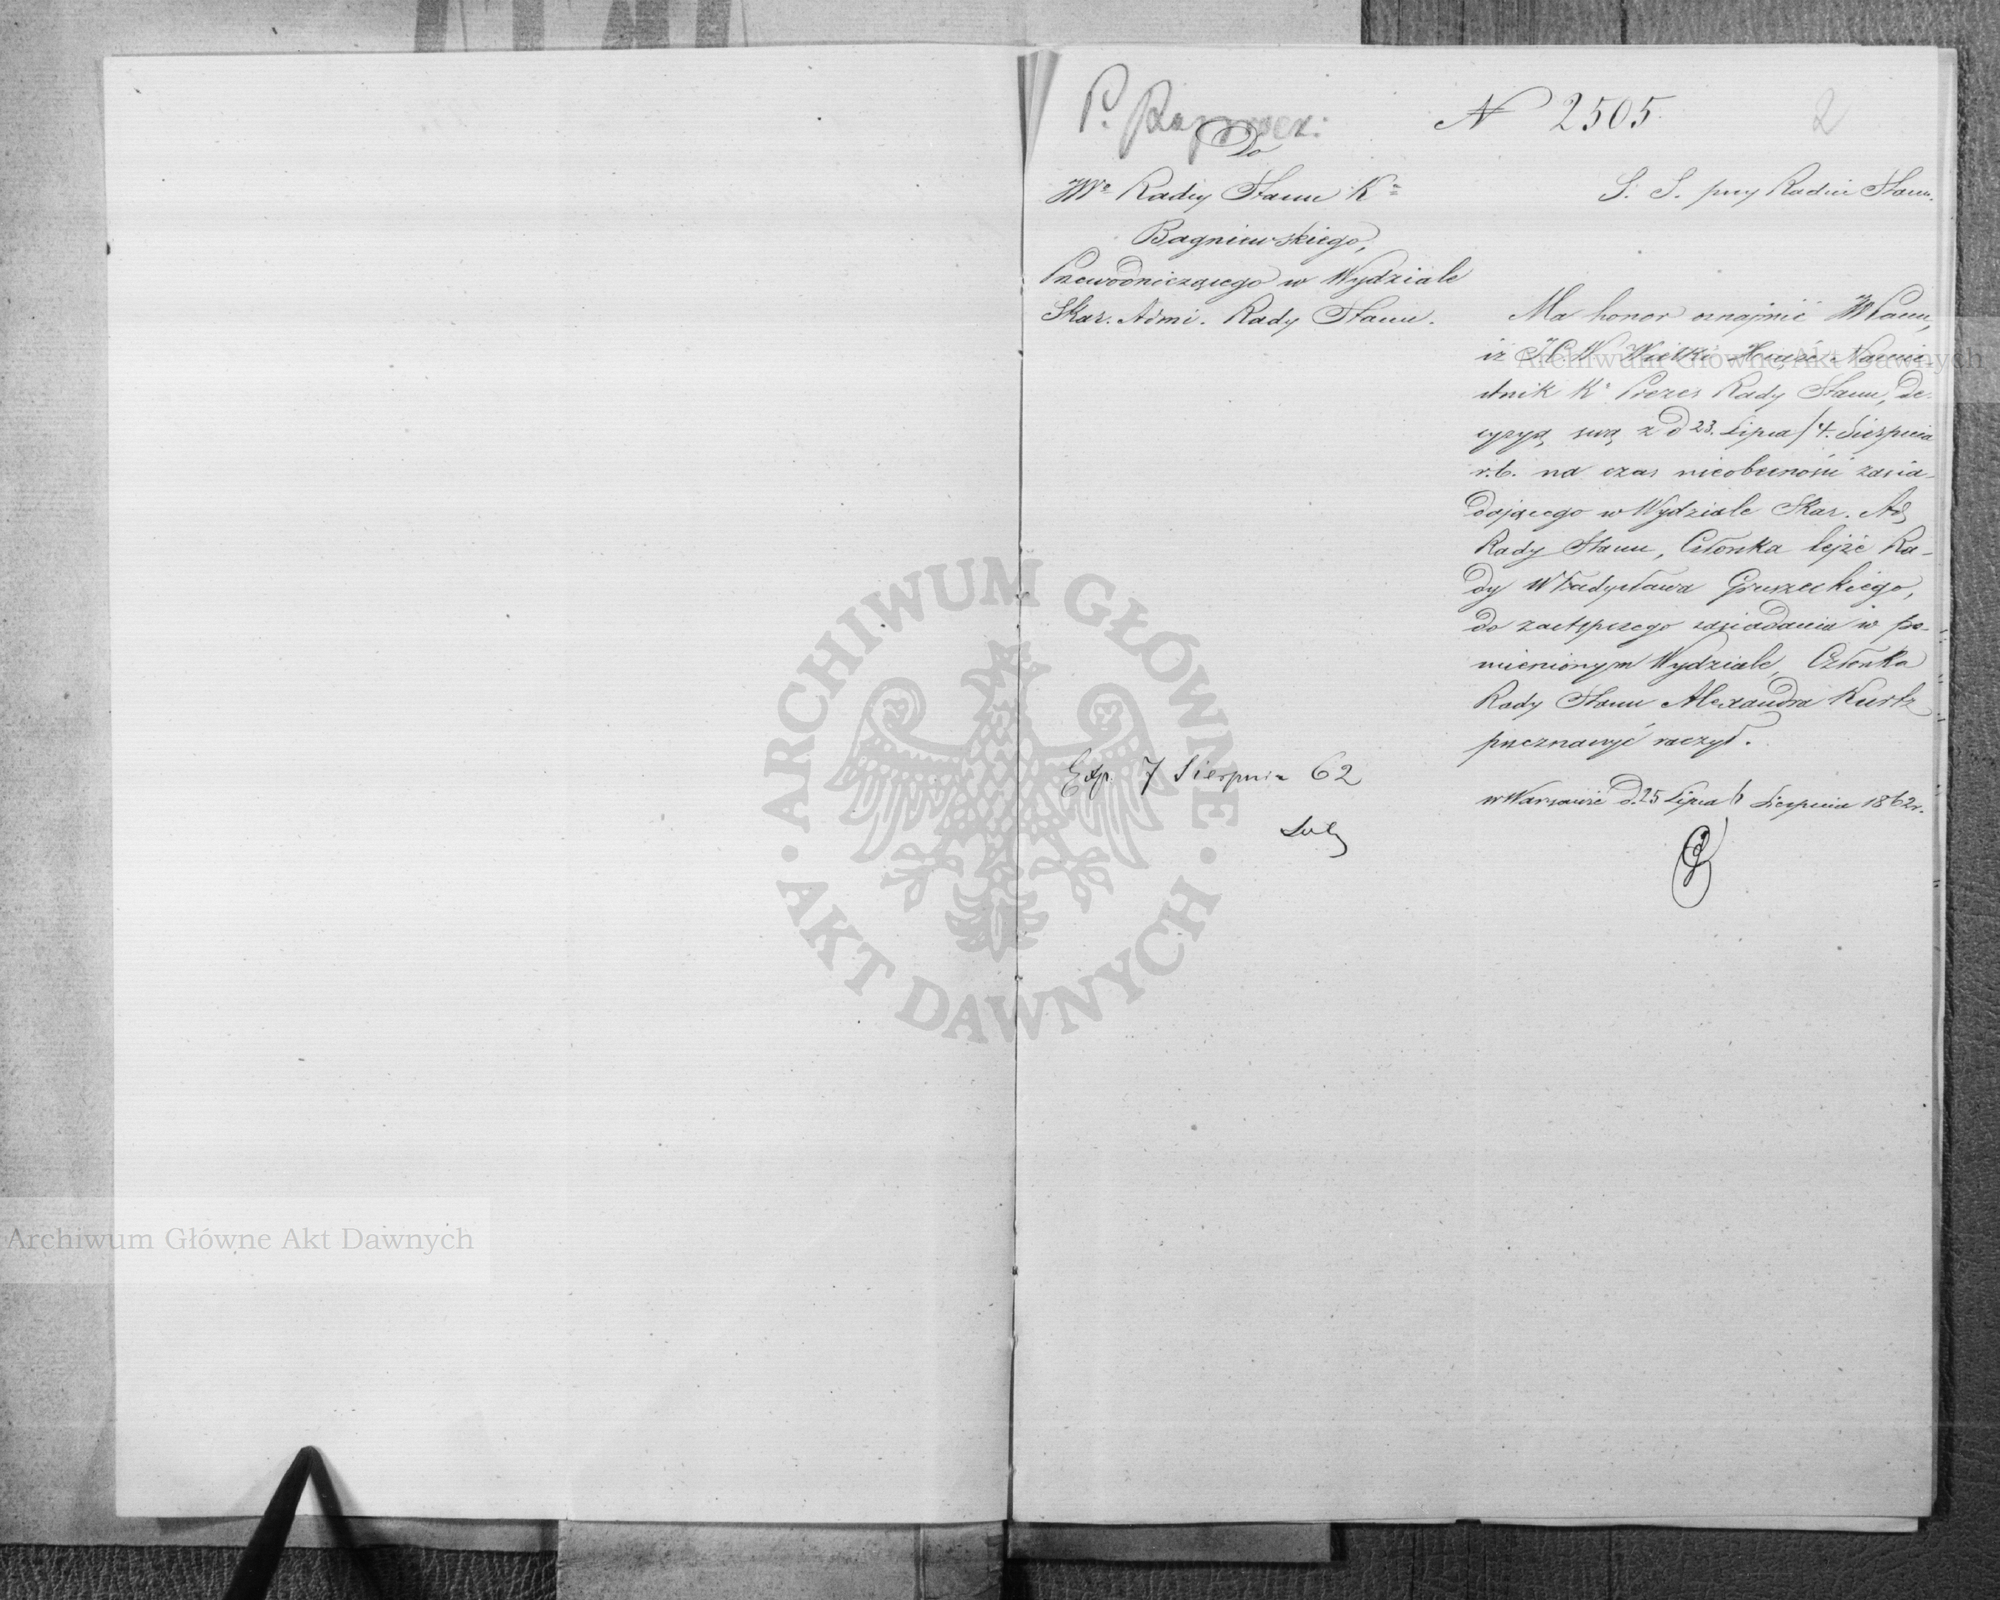 P.
N 2505.
2
Do
JWo Radcy Stanu Ko
Bagniewskiego,
Przewodniczącego w Wydziale
Skar. Admi. Rady Stanu.
S. S. przy Radzie Stanu.
Ma honor oznajmić JWPanu,
iż J.C.W. Wielki Xiąże Namie-
stnik Ki Prezes Rady Stanu, de-
cyzyą swą z d 23. Lipca/4. Sierpnia
r.b. na czas nieobecności zasia-
dającego w Wydziale Skar. Ad,
Rady Stanu, Członka tejże Ra-
dy Władysława Gruszeckiego,
do zastępczego zasiadania w po-
mienionym Wydziale, Członka
Rady Stanu Alexandra Kurtz
przeznaczyć raczył.
w Warszawie d. 25 Lipca/6 Sierpnia 1862 r.
Exp. 7 Sierpnia 62
ARCHIWUM GŁÓWNE
AKT DAWNYCH
Archiwum Główne Akt Dawnych
Archiwum Główne Akt Dawnych